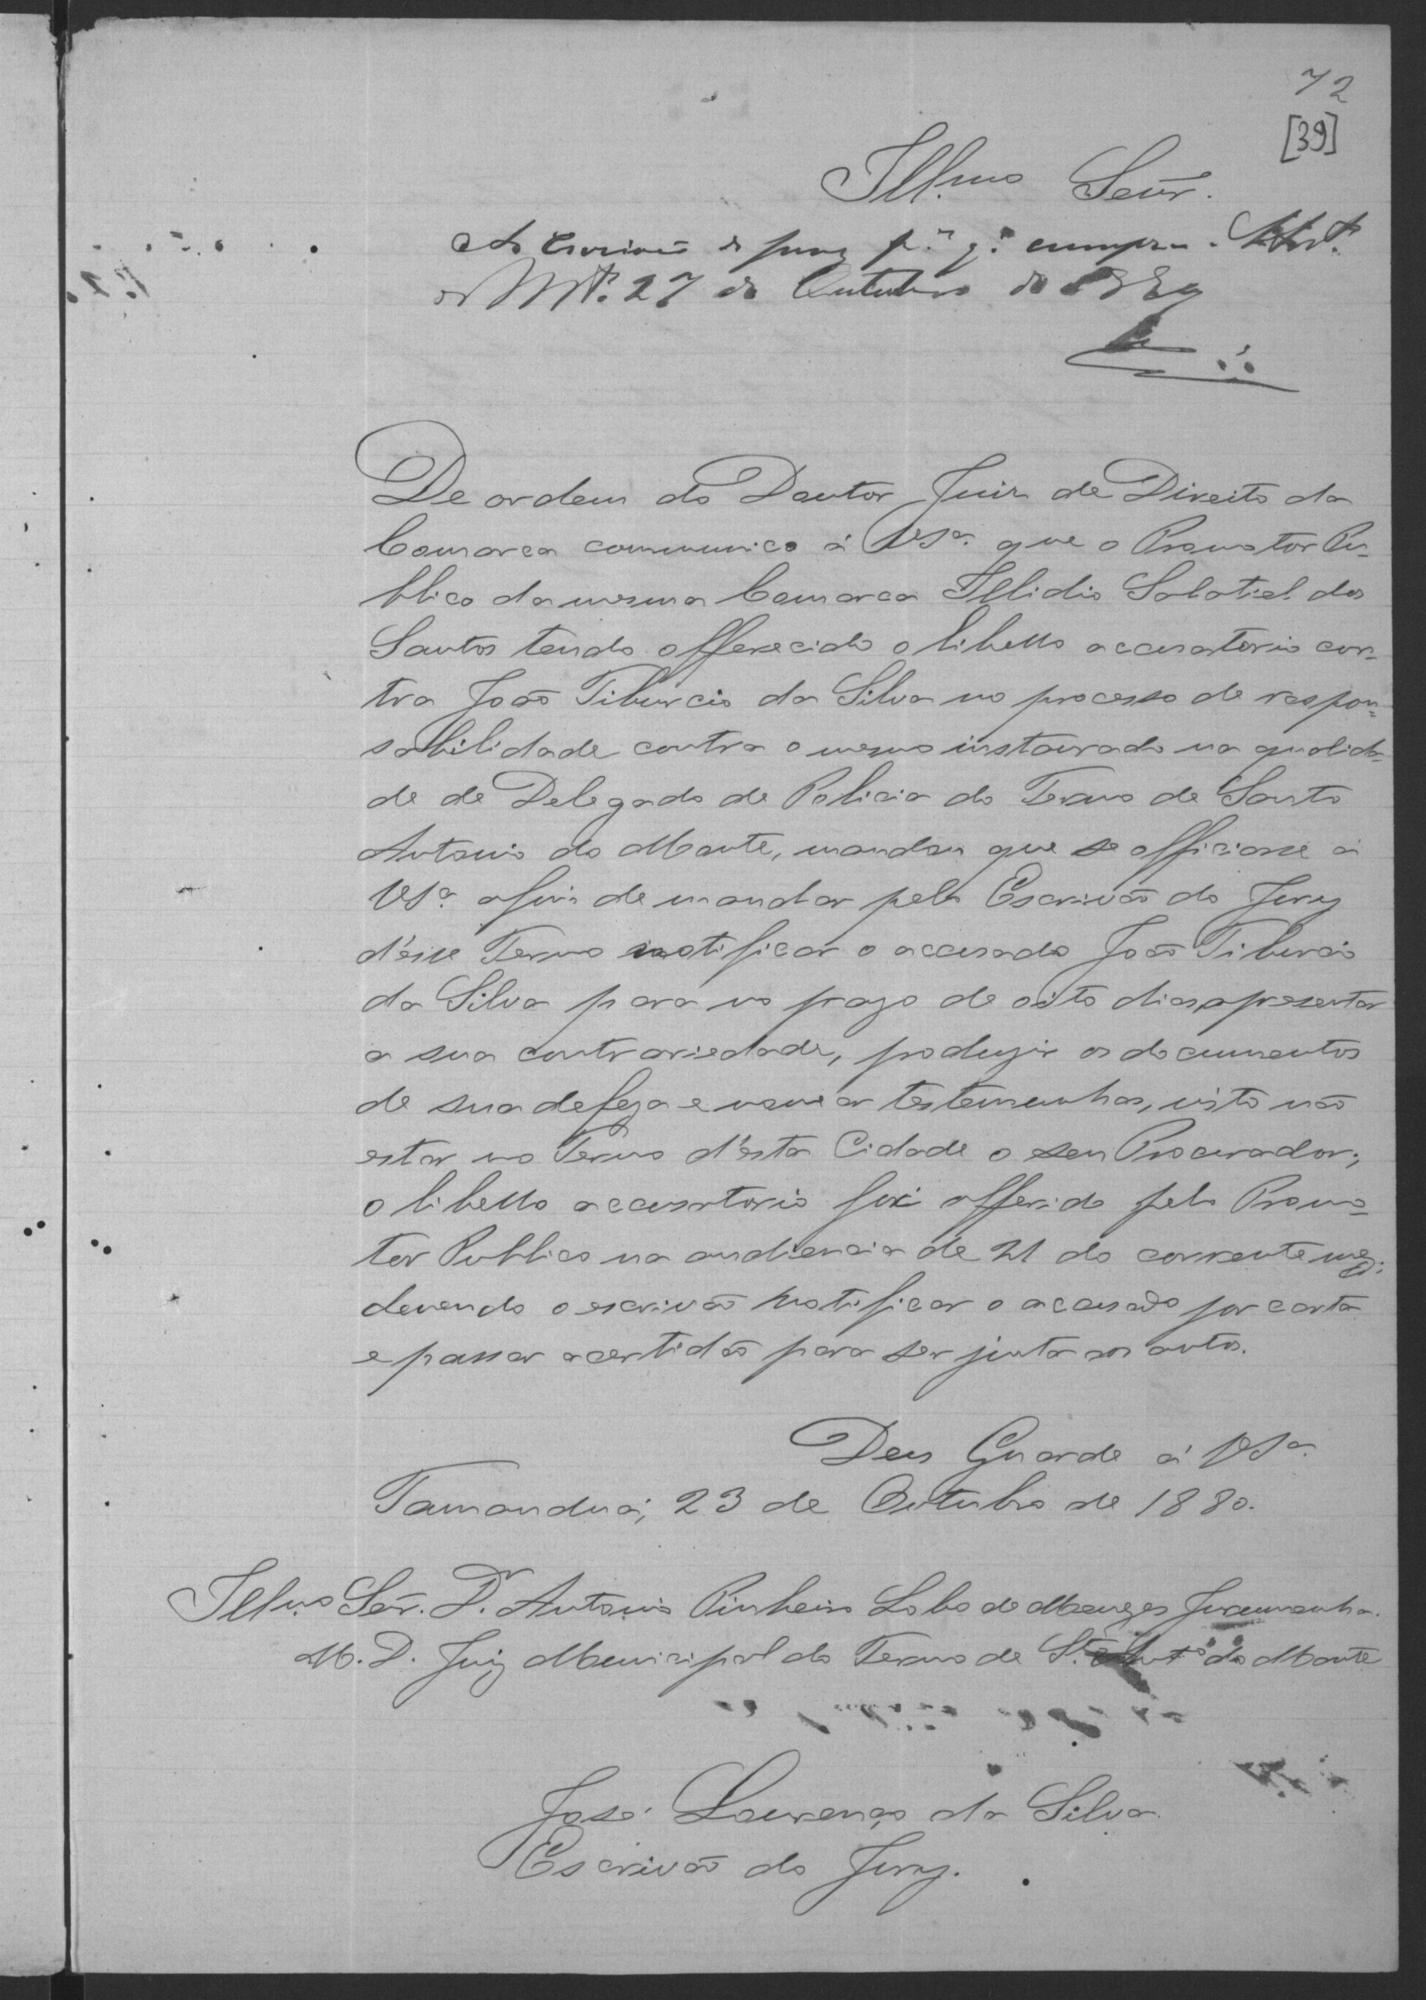 72
[39]
Illmo Señr.
Ao Escrivão do jury pª q.e cumpra. Stº Antº
do Mte. 27 de Outubro de 1880
De ordem do Doutor Juiz de Direito da
Comarca communico á VSª. que o Promotor Pu-
blico da mesma Comarca Illidio Salatiel dos
Santos tendo offerecido o libello accusatorio con-
tra João Tiburcio da Silva no processo de respon-
sabilidade contra o mesmo instaurado na qualida-
de de Delegado de Policia do Termo de Santo
Antonio do Monte, mandou que se officiasse á
VSª. afim de mandar pelo Escrivão do Jury
d'esse Termo notificar o accusado João Tiburcio
da Silva para no prazo de oito dias, apresentar
a sua contrariedade, produzir os documentos
de sua defeza e nomear testemunhas, visto não
estar no Termo d'esta Cidade o seu Procurador;
o libello accusatorio foi offerido pelo Promo-
tor Publico na audiencia de 21 do corrente mez;
devendo o escrivão notificar o acusado por carta
e passar a certidão para ser junta aos autos.
Deus Guarde á VSª.
Tamanduá, 23 de Outubro de 1880.
Illmo Señr. Dr. Antonio Pinheiro Lobo de Menezes Jurumenha.
M. D. Juiz Municipal do Termo de Sto. Antº do Monte
José Lourenço da Silva
Escrivão do Jury.